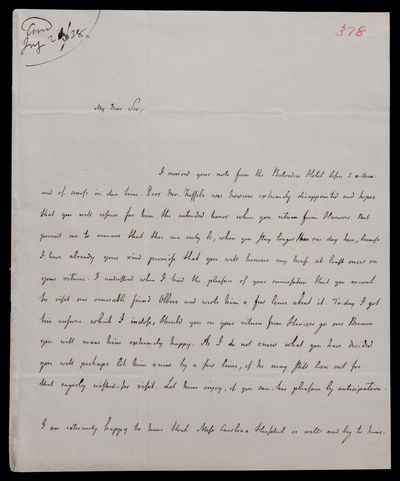 378.
My Dear Sir,
I received your note from the Belvedere Hotel before 3 o'clock
and of course in due time. Poor Mr. was however extremely disappointed and hopes
that you will reserve for him the intended honor when you return from Hanover. But
permit me to remark that this can only be, when you stay longer than one day here, because
I have already your kind promise that you will honour my house at least once on
your return. I understood when I had the pleasure of your conversation that you meant
to visit our venerable friend Olbers and wrote him a few lines about it. To-day I got
his answer which I inclose, should you on your return from Hanover go over Bremen
you will make him extremely happy. As I do not know what you have decided
you will perhaps let him know by a few lines, if he may still look out for
that eagerly wished-for visit. Let him enjoy, if you can, his pleasure by anticipation.
I am extremely happy to hear that Miss Carolina Herschel is well and beg to